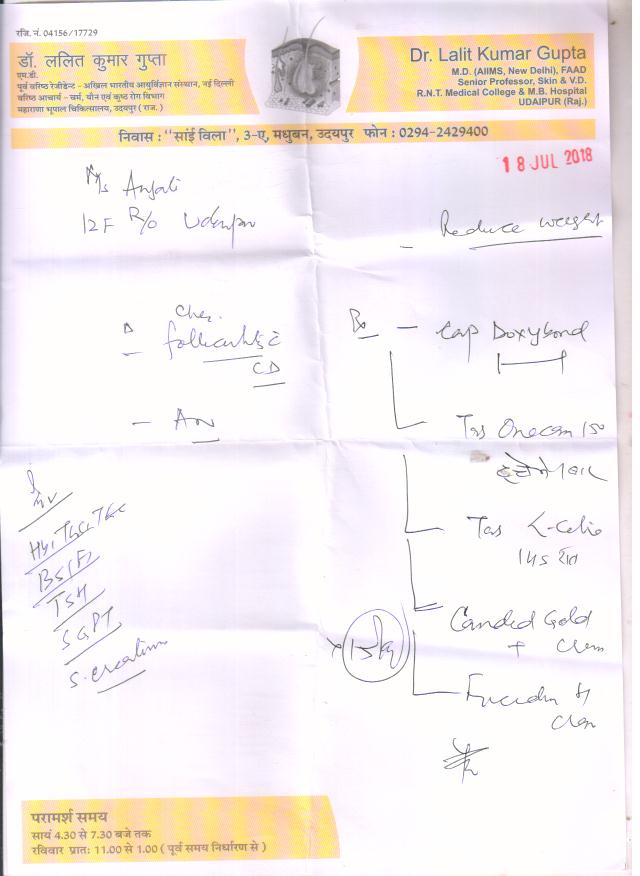 रजि. नं. 04156/17729
डॉ. ललित कुमार गुप्ता
एम.डी.
पूर्व वरिष्ठ रेजीडेन्ट - अखिल भारतीय आयुर्विज्ञान संस्थान, नई दिल्ली
वरिष्ठ आचार्य - चर्म, यौन एवं कुष्ठ रोग विभाग
महाराणा भूपाल चिकित्सालय, उदयपुर ( राज. )
Dr. Lalit Kumar Gupta
M.D. (AIIMS, New Delhi), FAAD
Senior Professor, Skin & V.D.
R.N.T. Medical College & M.B. Hospital
UDAIPUR (Raj.)
निवास : "सांई विला", 3-ए, मधुबन, उदयपुर फोन : 0294-2429400
18 JUL 2018
Ms Anjali
12F R/o Udaipur
- Reduce weight
Rx - Cap Doxybond
CD
Tas Onecan 150
Tas L-Cetio
Candid Gold
+ Cream
TSH
SGPT
S. creatinine
परामर्श समय
सायं 4.30 से 7.30 बजे तक
रविवार प्रातः 11.00 से 1.00 ( पूर्व समय निर्धारण से )